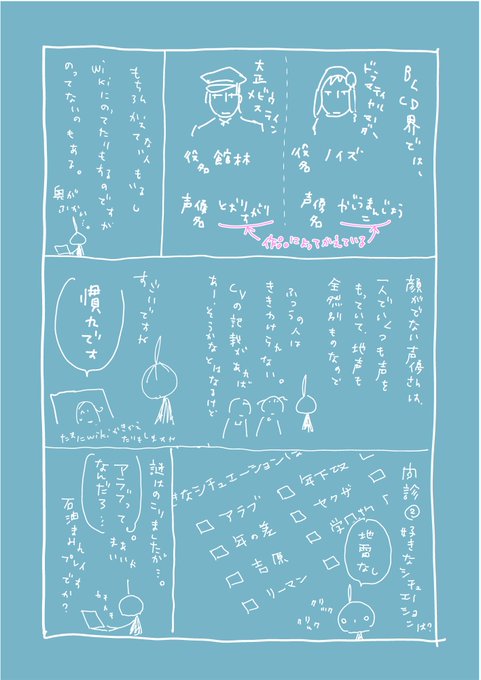 BLCD界では、
ドラマティカルマーダー
役名 ノイズ
声優名 がじろまんじょうこ
大正メビウスライン
役名 館林
声優名 とがりすがり
作品によってかえている
もちろんかえてない人もいるし
wikiにのってたりもするのですが
のってないのもある。
奥がふかい。
顔がでない声優さんは、
一人でいくつも声を
もっていて、地声も
全然別ものなので
ふつうの人は
ききわけられない。
CVの記載があれば
あーそうかなとはなるけど
すごいですが
慣れです
たまにwikiがきから
だたりもしますけ
問診② 好きなシチュエーションは?
きなシチュエーションは
年下攻
ヤクザ
学園
アラブ
年の差
吉原
リーマン
地雷なし
クリック
クリック
謎はのこりましたが…。
アラブって
なんだろ…
まぁいいか
石油まみれ
プレイです
か?